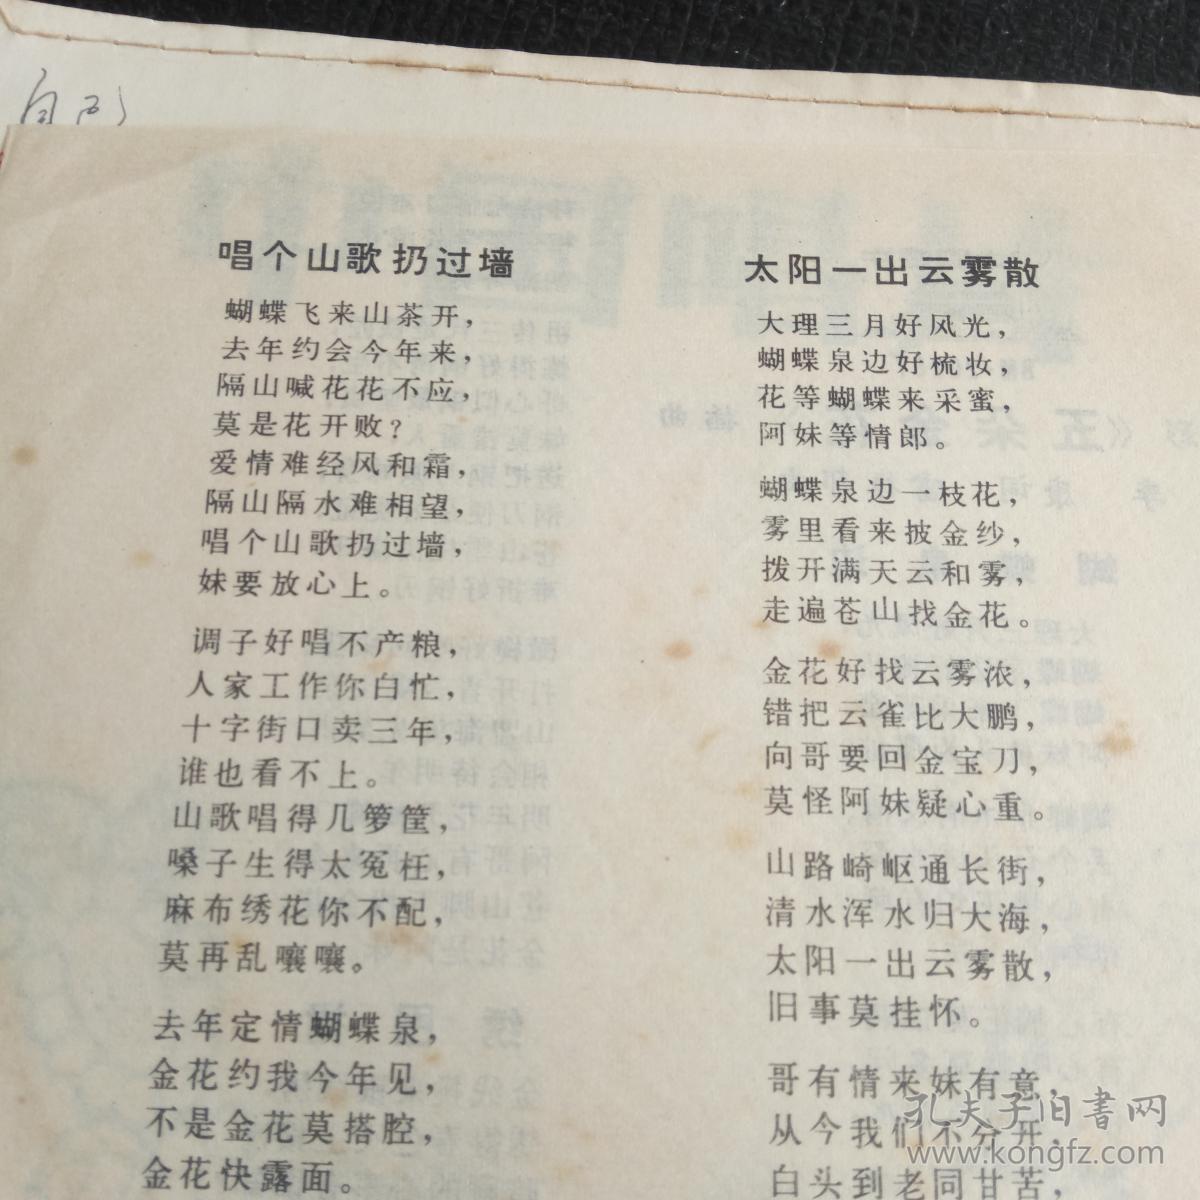 唱个山歌扔过墙
蝴蝶飞来山茶开，
去年约会今年来，
隔山喊花花不应，
莫是花开败？
爱情难经风和霜，
隔山隔水难相望，
唱个山歌扔过墙，
妹要放心上。
调子好唱不产粮，
人家工作你白忙，
十字街口卖三年，
谁也看不上。
山歌唱得几箩筐，
嗓子生得太冤枉，
麻布绣花你不配，
莫再乱嚷嚷。
去年定情蝴蝶泉，
金花约我今年见，
不是金花莫搭腔，
金花快露面。
太阳一出云雾散
大理三月好风光，
蝴蝶泉边好梳妆，
花等蝴蝶来采蜜，
阿妹等情郎。
蝴蝶泉边一枝花，
雾里看来披金纱，
拨开满天云和雾，
走遍苍山找金花。
金花好找云雾浓，
错把云雀比大鹏，
向哥要回金宝刀，
莫怪阿妹疑心重。
山路崎岖通长街，
清水浑水归大海，
太阳一出云雾散，
旧事莫挂怀。
哥有情来妹有意，
从今我们不分开，
白头到老同甘苦，
孔夫子旧书网
www.kongfz.com